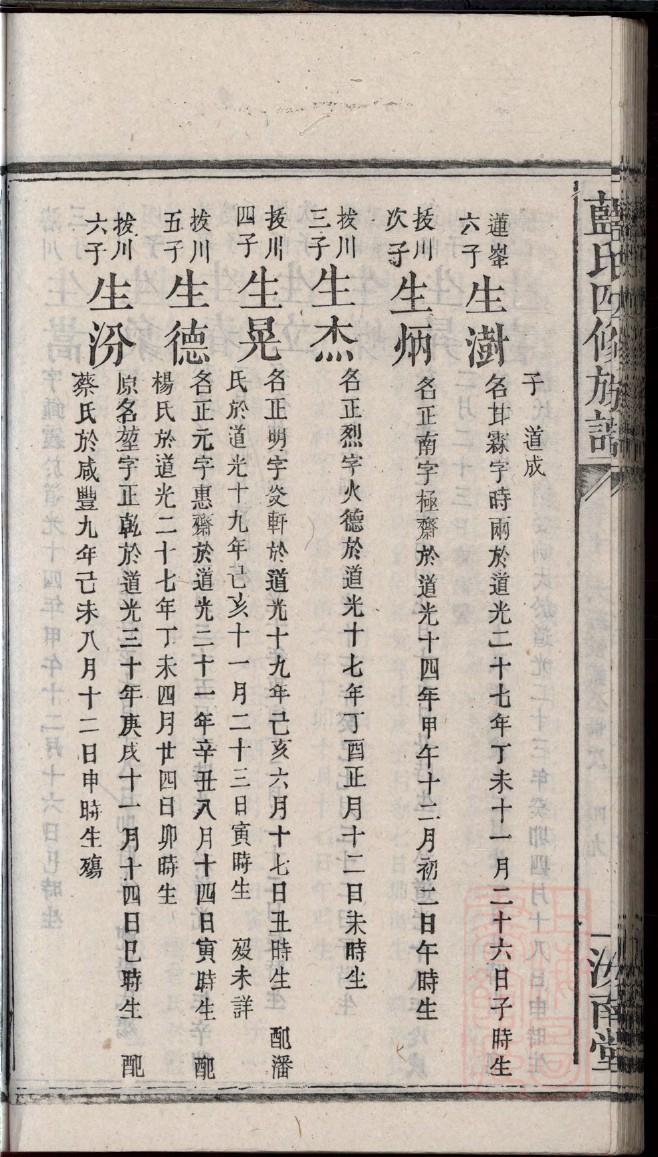 藍氏四修族譜
汝南堂
子 道成
蓮峯六子 生澍 名甘霖字時雨於道光二十七年丁未十一月二十六日子時生
拔川次子 生炳 名正南字極齋於道光十四年甲午十二月初二日午時生
拔川三子 生杰 名正烈字火德於道光十七年丁酉正月十二日未時生
拔川四子 生晃 名正明字炎軒於道光十九年己亥六月十七日丑時生 配潘
氏於道光十九年己亥十一月二十三日寅時生 歿未詳
拔川五子 生德 名正元字惠齋於道光二十一年辛丑八月十四日寅時生 配
楊氏於道光二十七年丁未四月廿四日卯時生
拔川六子 生汾 原名堃字正乾於道光三十年庚戌十一月十四日巳時生 配
蔡氏於咸豐九年己未八月十二日申時生殤